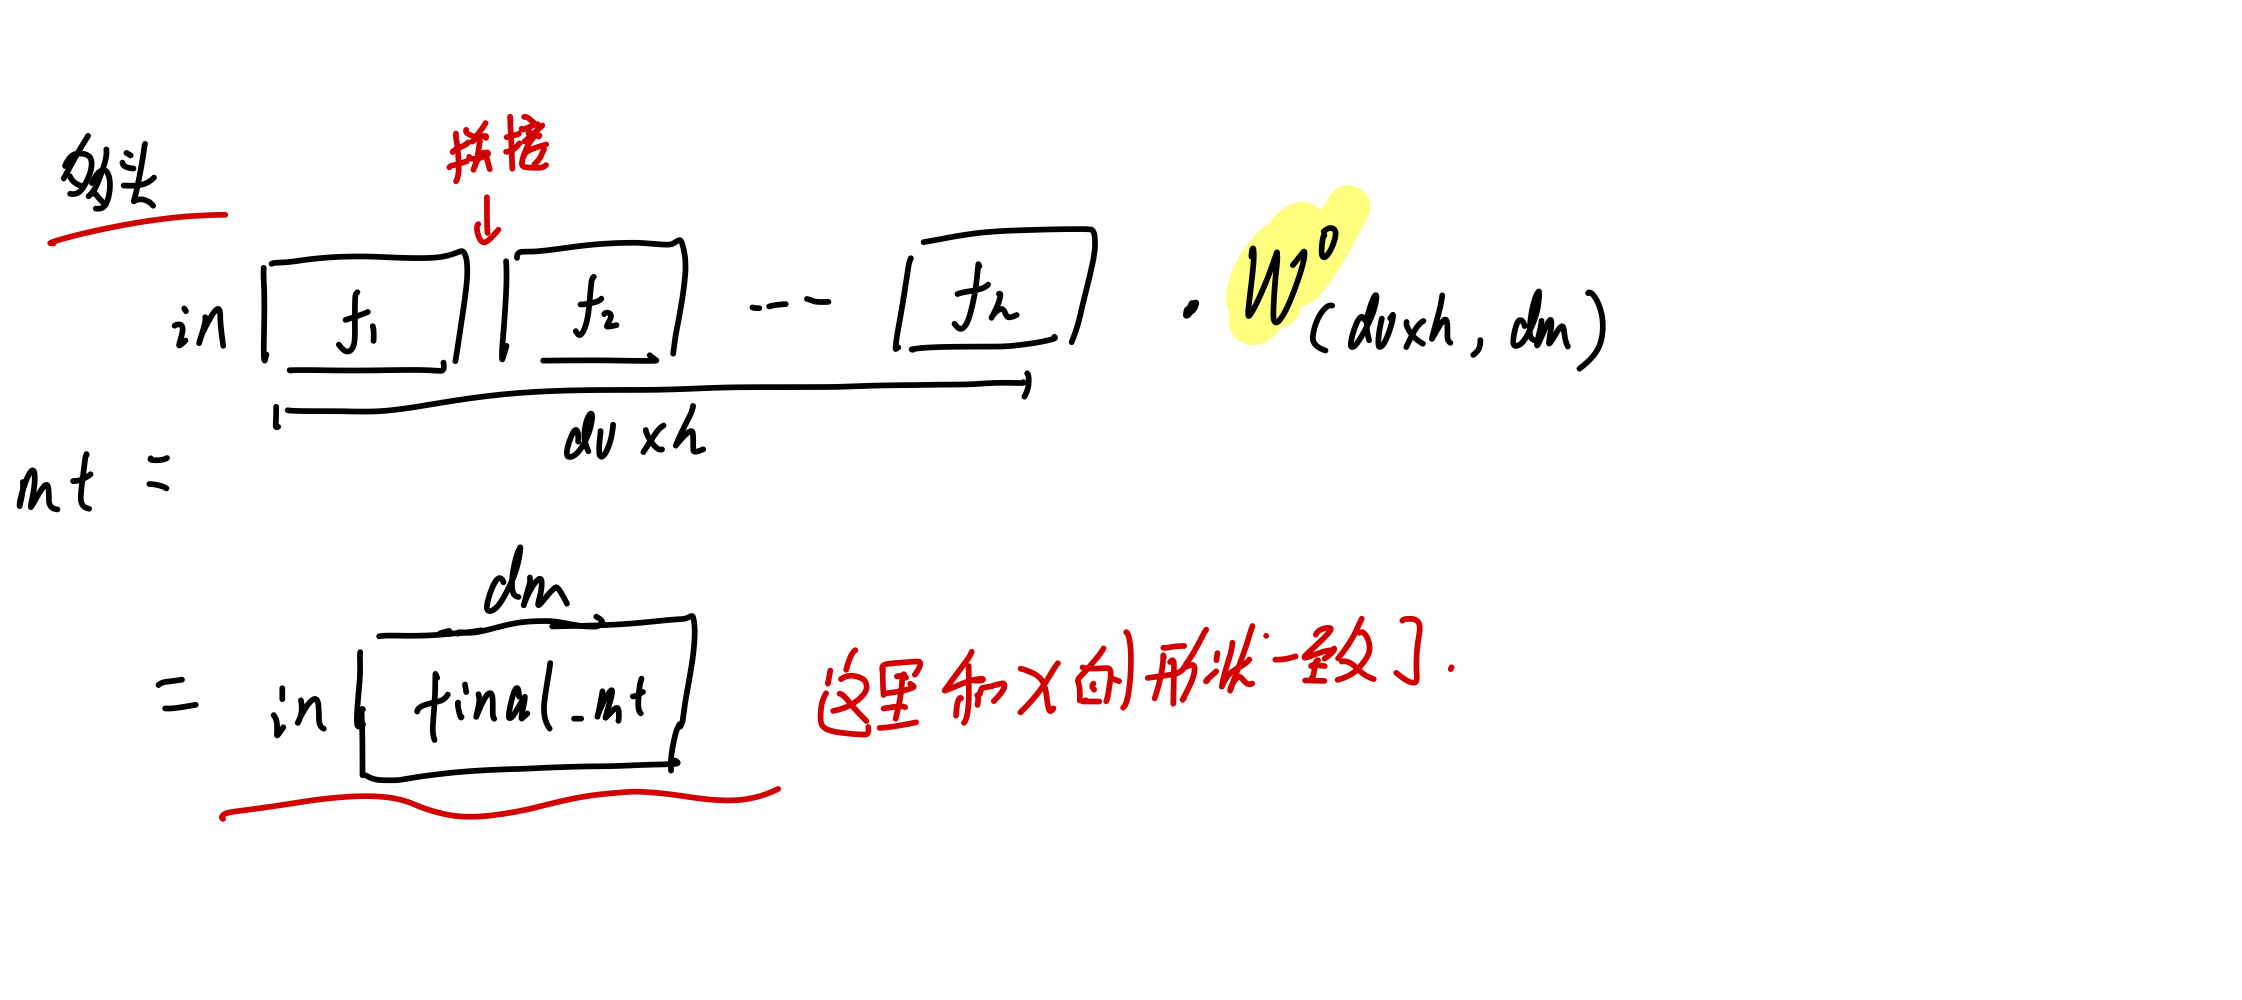 多头
拼接
in f₁ f₂ --- fₕ · W⁰ (dv×h, dm)
dv×h
mt =
dm
= in final_mt 这里和X的形状一致了.